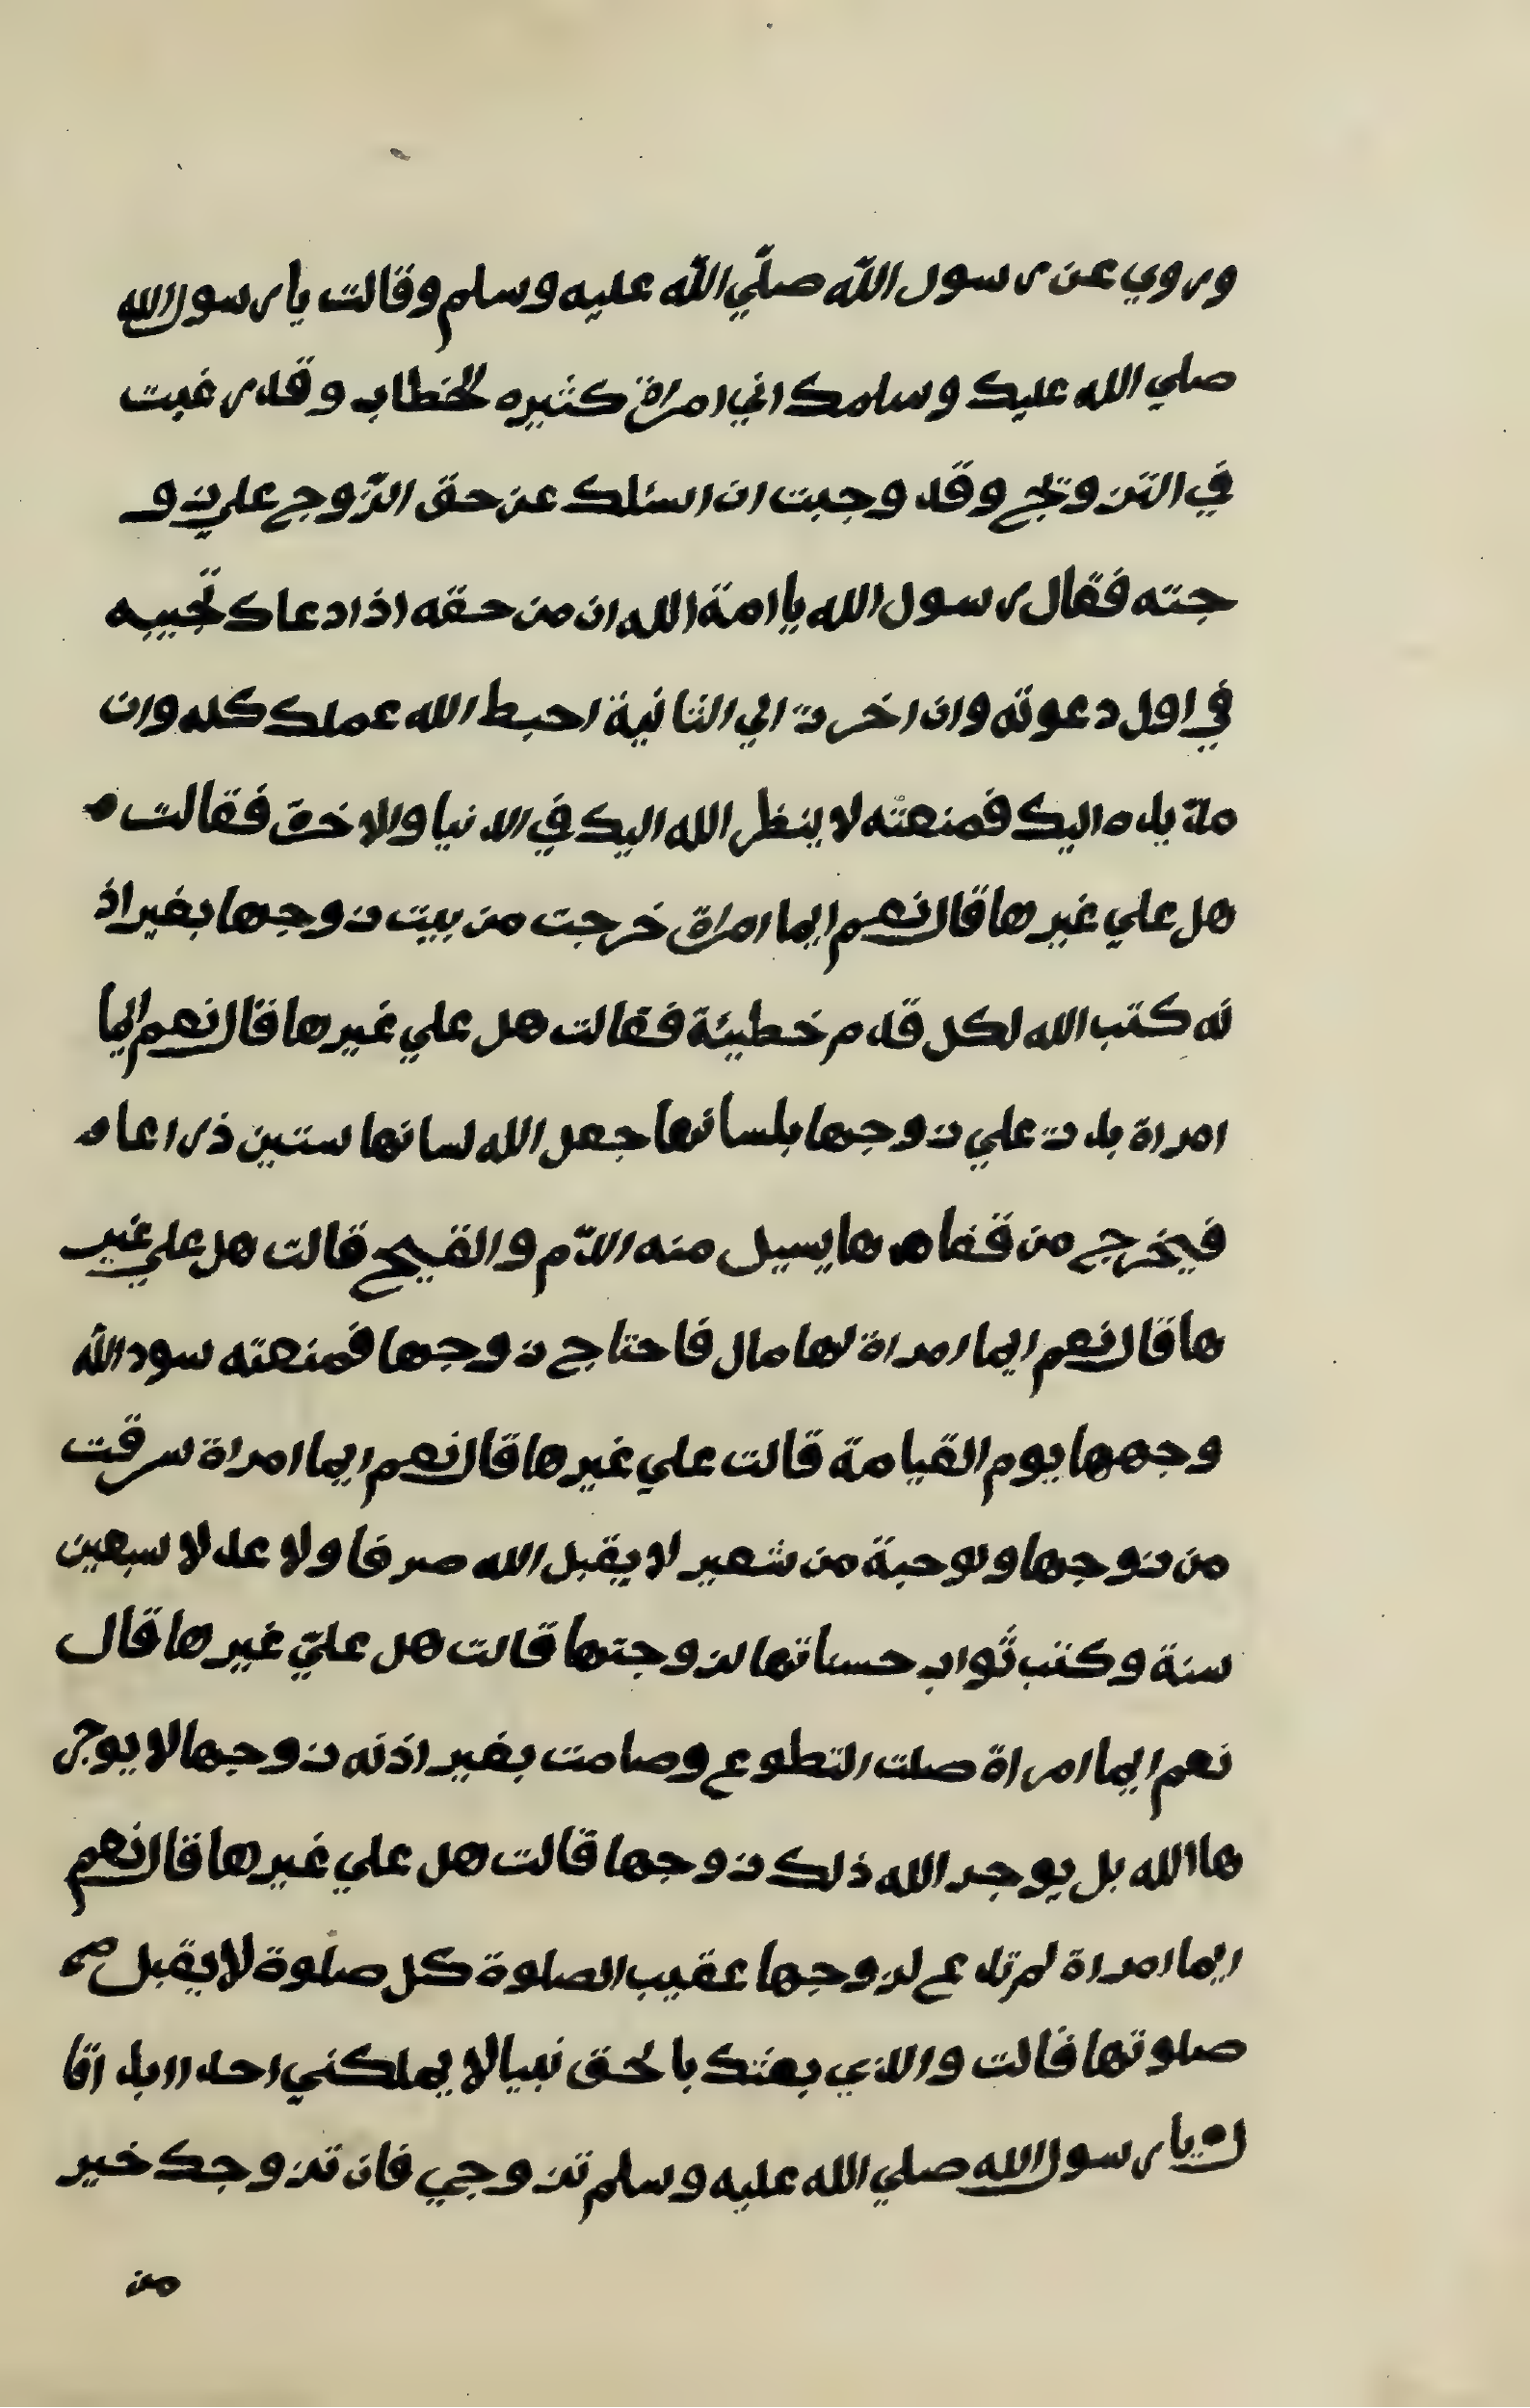 وروي عن رسول الله صلّي الله عليه وسلم وقالت يا رسول الله
صلي الله عليك وسلمك اني امراة كثيره الخطاب وقد رغبت
في التزويج وقد وجبت ان اسئلك عن حق الزّوج علي زو
جته فقال رسول الله يا امة الله ان من حقه اذا دعاك تجيبه
في اول دعوته وان اخرت الي الثانية احبط الله عملك كله وان
مدّ يده اليك فمنعته لا ينظر الله اليك في الدنيا والاخرة فقالت
هل علي غيرها قال نعم ايما امراة خرجت من بيت زوجها بغير اذ
نه كتب الله لكل قدم خطيئة فقالت هل علي غيرها قال نعم ايما
امراة بدت علي زوجها بلسانها جعل الله لسانها ستين ذراعا
فيخرج من قفاها يسيل منه الدّم والقيح قالت هل علي غير
ها قال نعم ايما امراة لها مال فاحتاج زوجها فمنعته سود الله
وجهها يوم القيامة قالت علي غيرها قال نعم ايما امراة سرقت
من زوجها ولو حبة من شعير لا يقبل الله صرفا ولا عدلا سبعين
سنة وكتب ثواب حسناتها لزوجتها قالت هل عليّ غيرها قال
نعم ايما امراة صلت التطوع وصامت بغير اذنه زوجها لا يوجر
ها الله بل يوجر الله ذلك زوجها قالت هل علي غيرها قال نعم
ايما امراة لم تدع لزوجها عقيب الصلوة كل صلوة لا يقبل
صلوتها قالت والذي بعثك بالحق نبيا لا يملكني احد ابدا قا
ل يا رسول الله صلي الله عليه وسلم تزوجي فان تزوجك خير
من